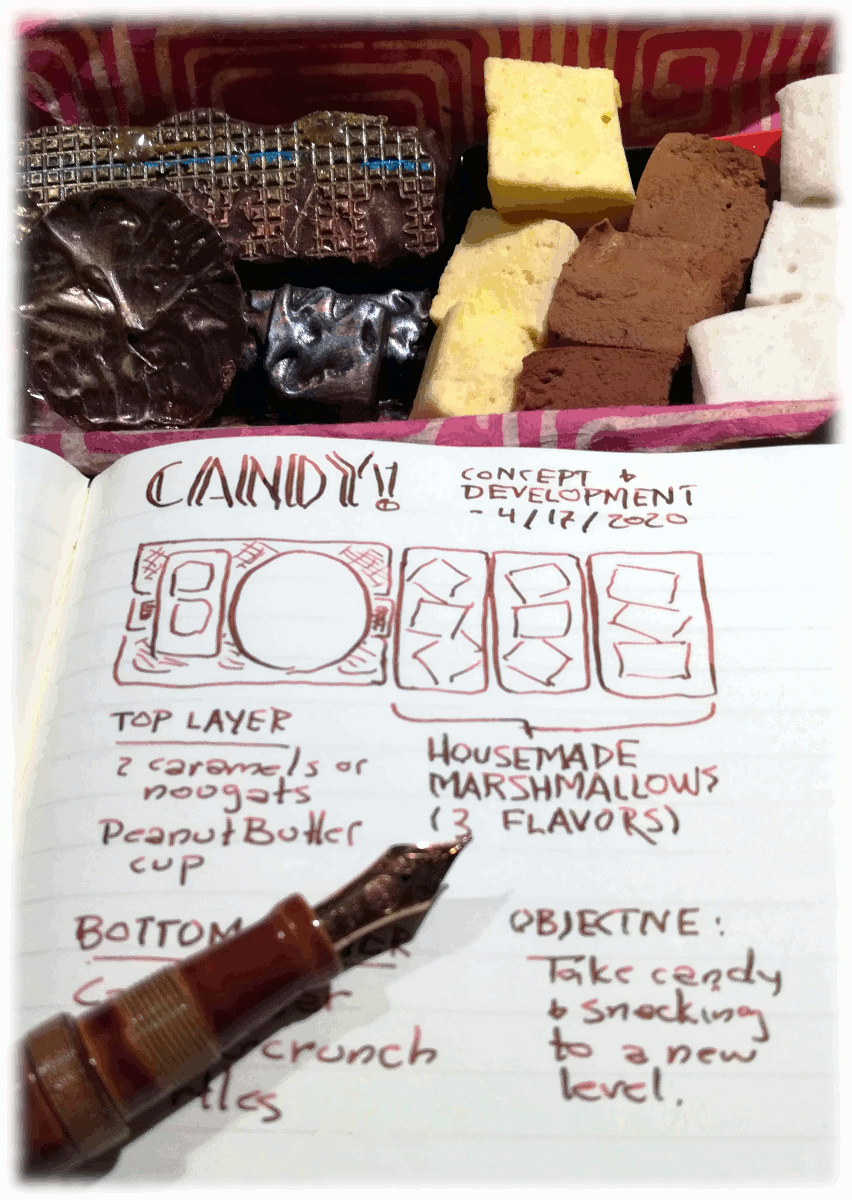 CANDY!
CONCEPT &
DEVELOPMENT
- 4/17/2020
TOP LAYER
2 caramels or
nougats
Peanut Butter
cup
HOUSEMADE
MARSHMALLOWS
(3 FLAVORS)
BOTTOM
or
crunch
OBJECTIVE:
Take candy
& snacking
to a new
level.